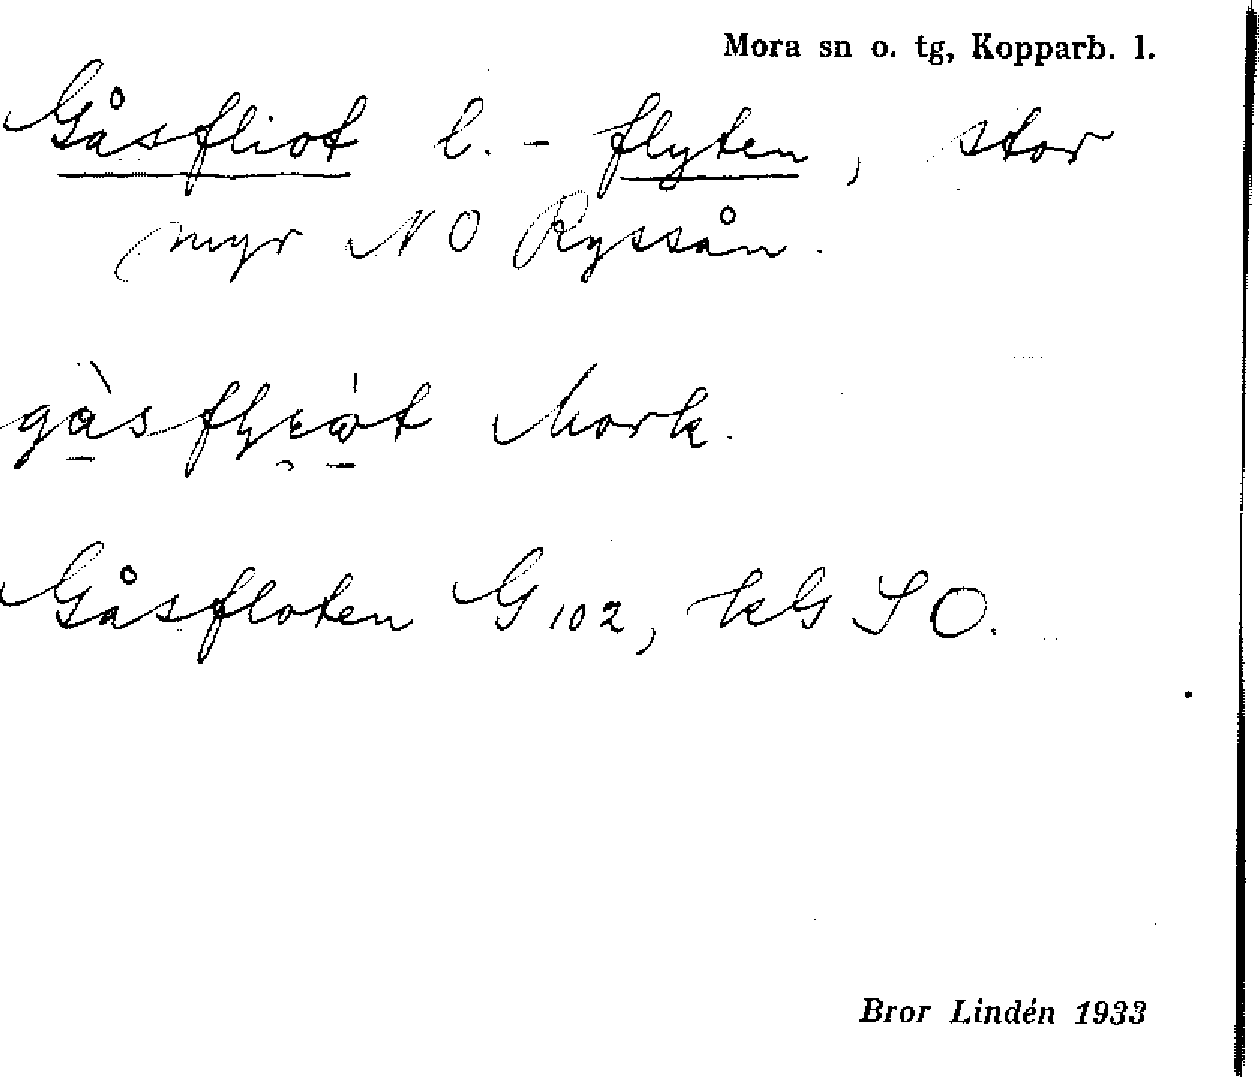 Mora sn o. tg, Kopparb. l.
Gåsfliot l. -flyten, stor
myr NO Ryssån.
Mork.
Gåsfloten G 102, kG SO.
Bror Lindén 1933